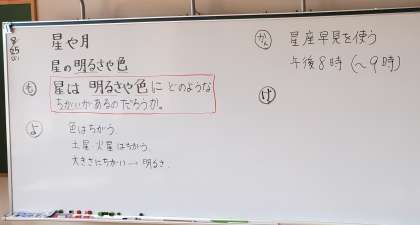 8
25
星や月
星の明るさや色
も 星は 明るさや色に どのような
ちがいがあるのだろうか。
よ 色はちがう
土星・火星はちがう
大きさにちがい → 明るさ
かん 星座早見を使う
午後8時(〜9時)
け